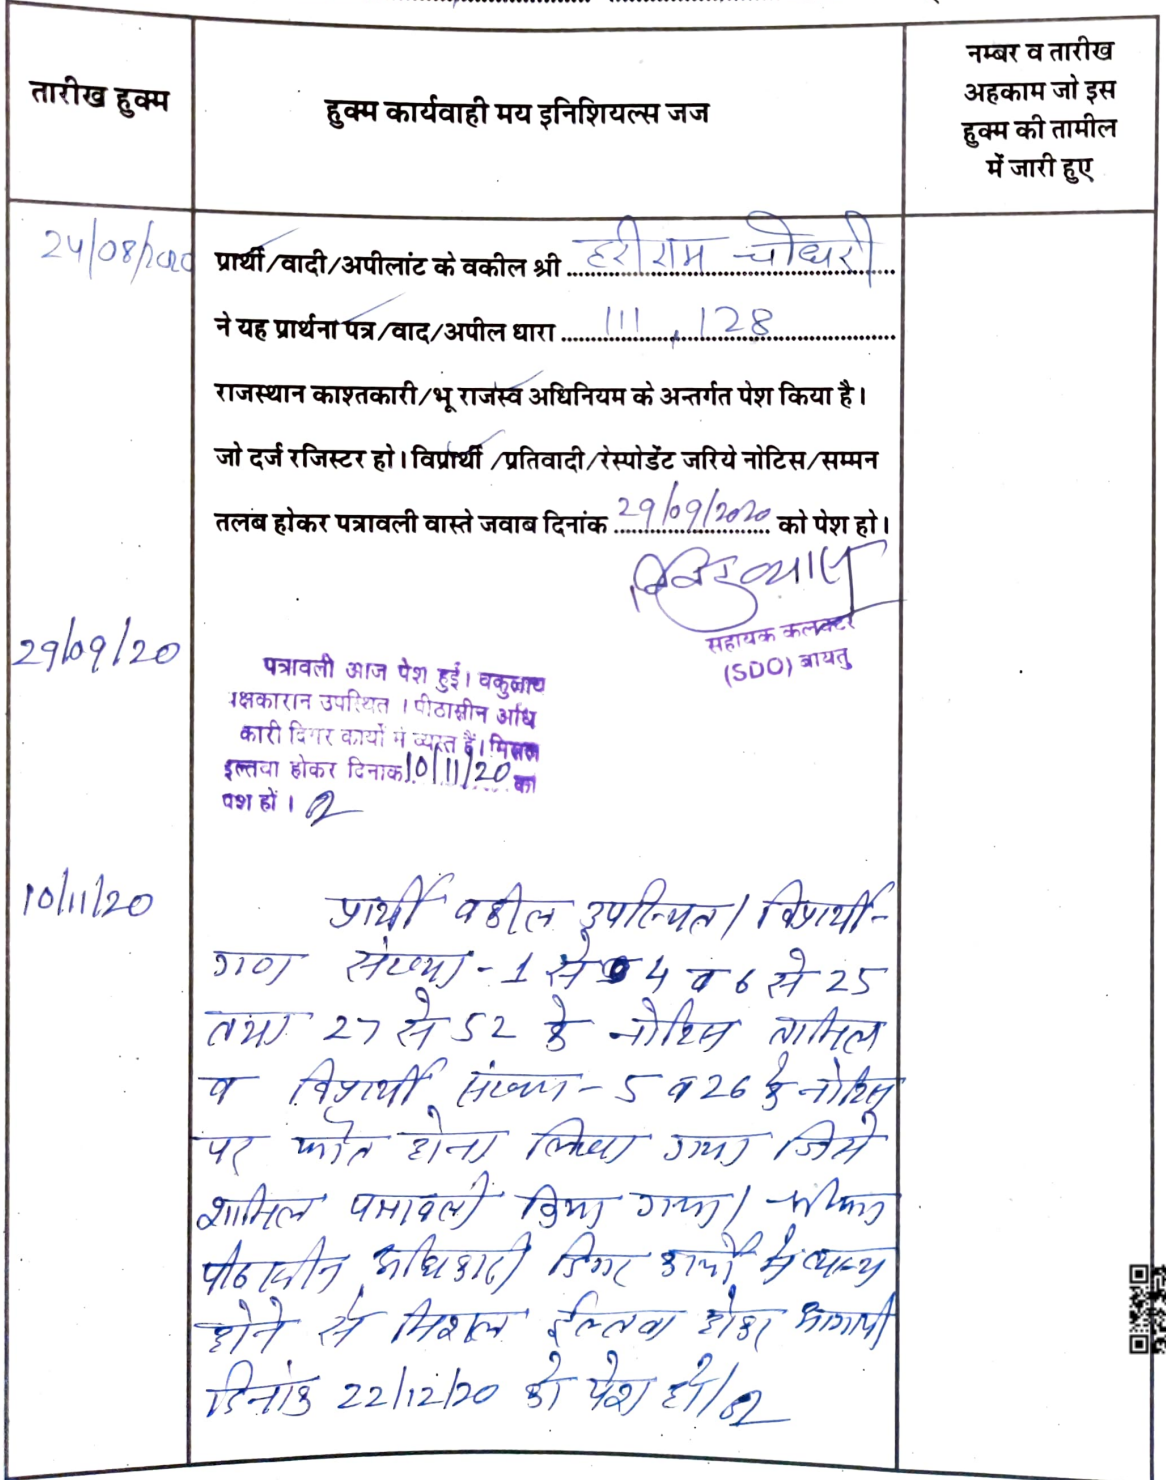 तारीख हुक्म
हुक्म कार्यवाही मय इनिशियल्स जज
नम्बर व तारीख
अहकाम जो इस
हुक्म की तामील
में जारी हुए
24/08/2020
प्रार्थी/वादी/अपीलांट के वकील श्री हरीराम चौधरी
ने यह प्रार्थना पत्र/वाद/अपील धारा 111, 128
राजस्थान काश्तकारी/भू राजस्व अधिनियम के अन्तर्गत पेश किया है।
जो दर्ज रजिस्टर हो। विप्रार्थी/प्रतिवादी/रेस्पोडेंट जरिये नोटिस/सम्मन
तलब होकर पत्रावली वास्ते जवाब दिनांक 29/09/2020 को पेश हो।
सहायक कलक्टर
(SDO) बायतु
29/09/20
पत्रावली आज पेश हुई। वकुलाय
पक्षकारान उपस्थित। पीठासीन अधि
कारी दिगर कार्यो में व्यस्त हैं। मिसल
इल्तवा होकर दिनाक 10/11/20 को
पेश हों।
10/11/20
प्रार्थी वकील उपस्थित। विप्रार्थी-
गण संख्या - 1 से 4 व 6 से 25
तथा 27 से 52 के नोटिस तामिल
व विप्रार्थी संख्या - 5 व 26 के नोटिस
पर फौत होना लिखा गया जिसे
शामिल पत्रावली किया गया।
पीठासीन अधिकारी दिगर कार्यो में व्यस्त
होने से मिशल ईल्तवा होकर आगामी
दिनांक 22/12/20 को पेश हो।